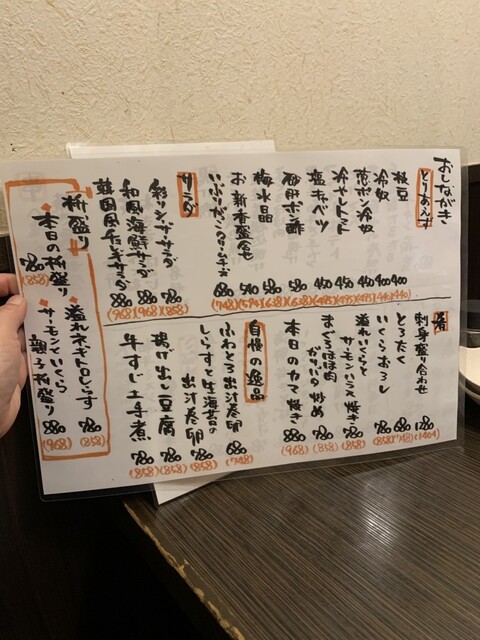 おしながき
とりあえず
枝豆 400 (440)
冷奴 400 (440)
葱ポン冷奴 450 (495)
冷やしトマト 450 (495)
塩キャベツ 450 (495)
砂肝ポン酢 580 (638)
梅水晶 580 (638)
お新香盛合せ 540 (594)
いぶりがっこクリームチーズ 680 (748)
サラダ
彩りシーザーサラダ 780 (858)
和風海鮮サラダ 880 (968)
韓国風チョレギサラダ 880 (968)
肴
刺身盛り合わせ 1280 (1404)
とろたく 680 (748)
いくらおろし 780 (858)
溢れいくらと
サーモンハラス焼き 780 (858)
まぐろほほ肉
ガリバタ炒め 780 (858)
本日のカマ焼き 880 (968)
自慢の逸品
ふわとろ出汁巻卵 680 (748)
しらすと生海苔の
出汁巻卵 780 (858)
揚げ出し豆腐 780 (858)
牛すじ土手煮 780 (858)
桝盛り
本日の桝盛り 780 (858)
溢れネギトロしらす 780 (858)
サーモンといくら
親子桝盛り 880 (968)